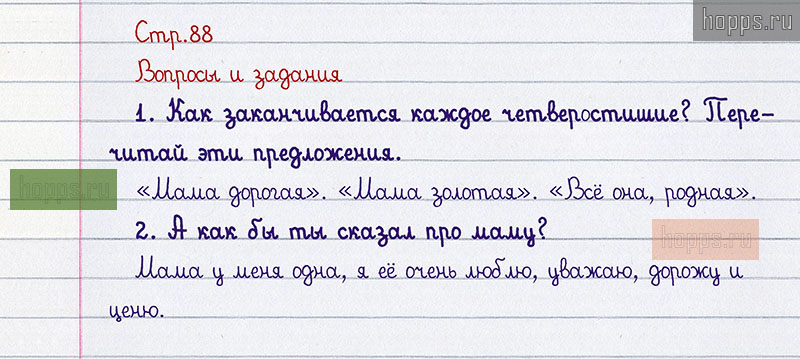 hopps.ru
Стр.88
Вопросы и задания
1. Как заканчивается каждое четверостишие? Пере-
читай эти предложения.
hopps.ru
«Мама дорогая». «Мама золотая». «Всё она, родная».
2. А как бы ты сказал про маму?
hopps.ru
Мама у меня одна, я её очень люблю, уважаю, дорожу и
ценю.